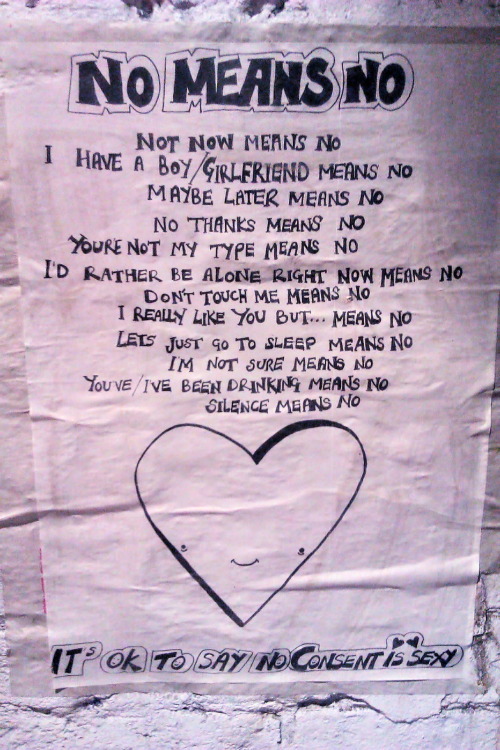 NO MEANS NO
NOT NOW MEANS NO
I HAVE A BOY/GIRLFRIEND MEANS NO
MAYBE LATER MEANS NO
NO THANKS MEANS NO
YOURE NOT MY TYPE MEANS NO
I'D RATHER BE ALONE RIGHT NOW MEANS NO
DON'T TOUCH ME MEANS NO
I REALLY LIKE YOU BUT... MEANS NO
LETS JUST GO TO SLEEP MEANS NO
I'M NOT SURE MEANS NO
YOU'VE/I'VE BEEN DRINKING MEANS NO
SILENCE MEANS NO
IT'S OK TO SAY NO CONSENT IS SEXY